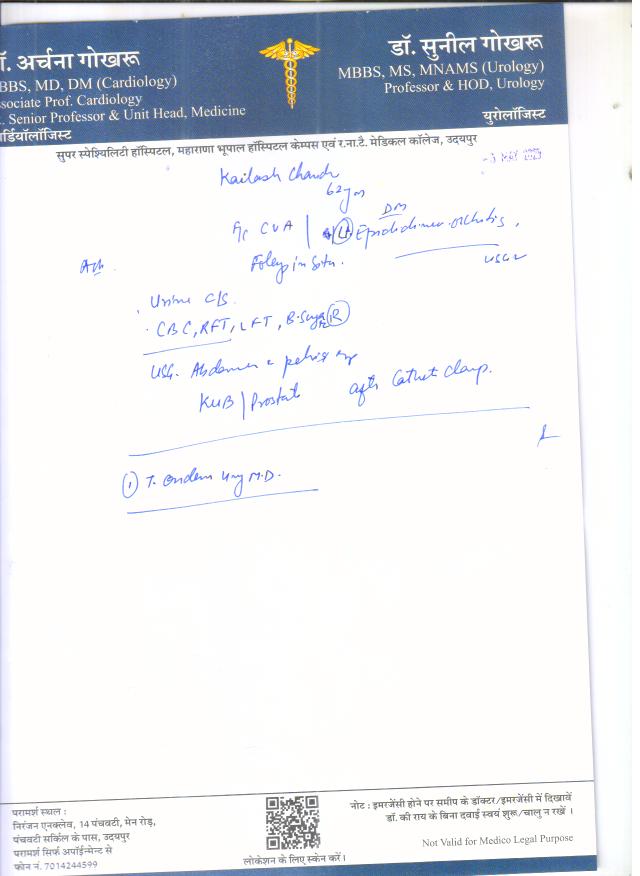 ॉ. अर्चना गोखरू
BBS, MD, DM (Cardiology)
ssociate Prof. Cardiology
. Senior Professor & Unit Head, Medicine
ार्डियॉलॉजिस्ट
डॉ. सुनील गोखरू
MBBS, MS, MNAMS (Urology)
Professor & HOD, Urology
युरोलॉजिस्ट
सुपर स्पेश्यिलिटी हॉस्पिटल, महाराणा भूपाल हॉस्पिटल केम्पस एवं र.ना.टै. मेडिकल कॉलेज, उदयपुर
Kailash Chand
62 ym
DM
CVA | Lt Epididimo-orchitis,
Foleys in situ.
USG
Urine C/S.
CBC, RFT, LFT, B. Sugar R
USG. Abdomen pelvis
KUB | Prostate after Cathet clamp.
1 T.
परामर्श स्थल :
निरंजन एनक्लेव, 14 पंचवटी, मेन रोड़,
पंचवटी सर्किल के पास, उदयपुर
परामर्श सिर्फ अपॉईन्मेन्ट से
फोन नं. 7014244599
लोकेशन के लिए स्केन करें।
नोट : इमरजेंसी होने पर समीप के डॉक्टर/इमरजेंसी में दिखावें
डॉ. की राय के बिना दवाई स्वयं शुरू/चालु न रखें ।
Not Valid for Medico Legal Purpose